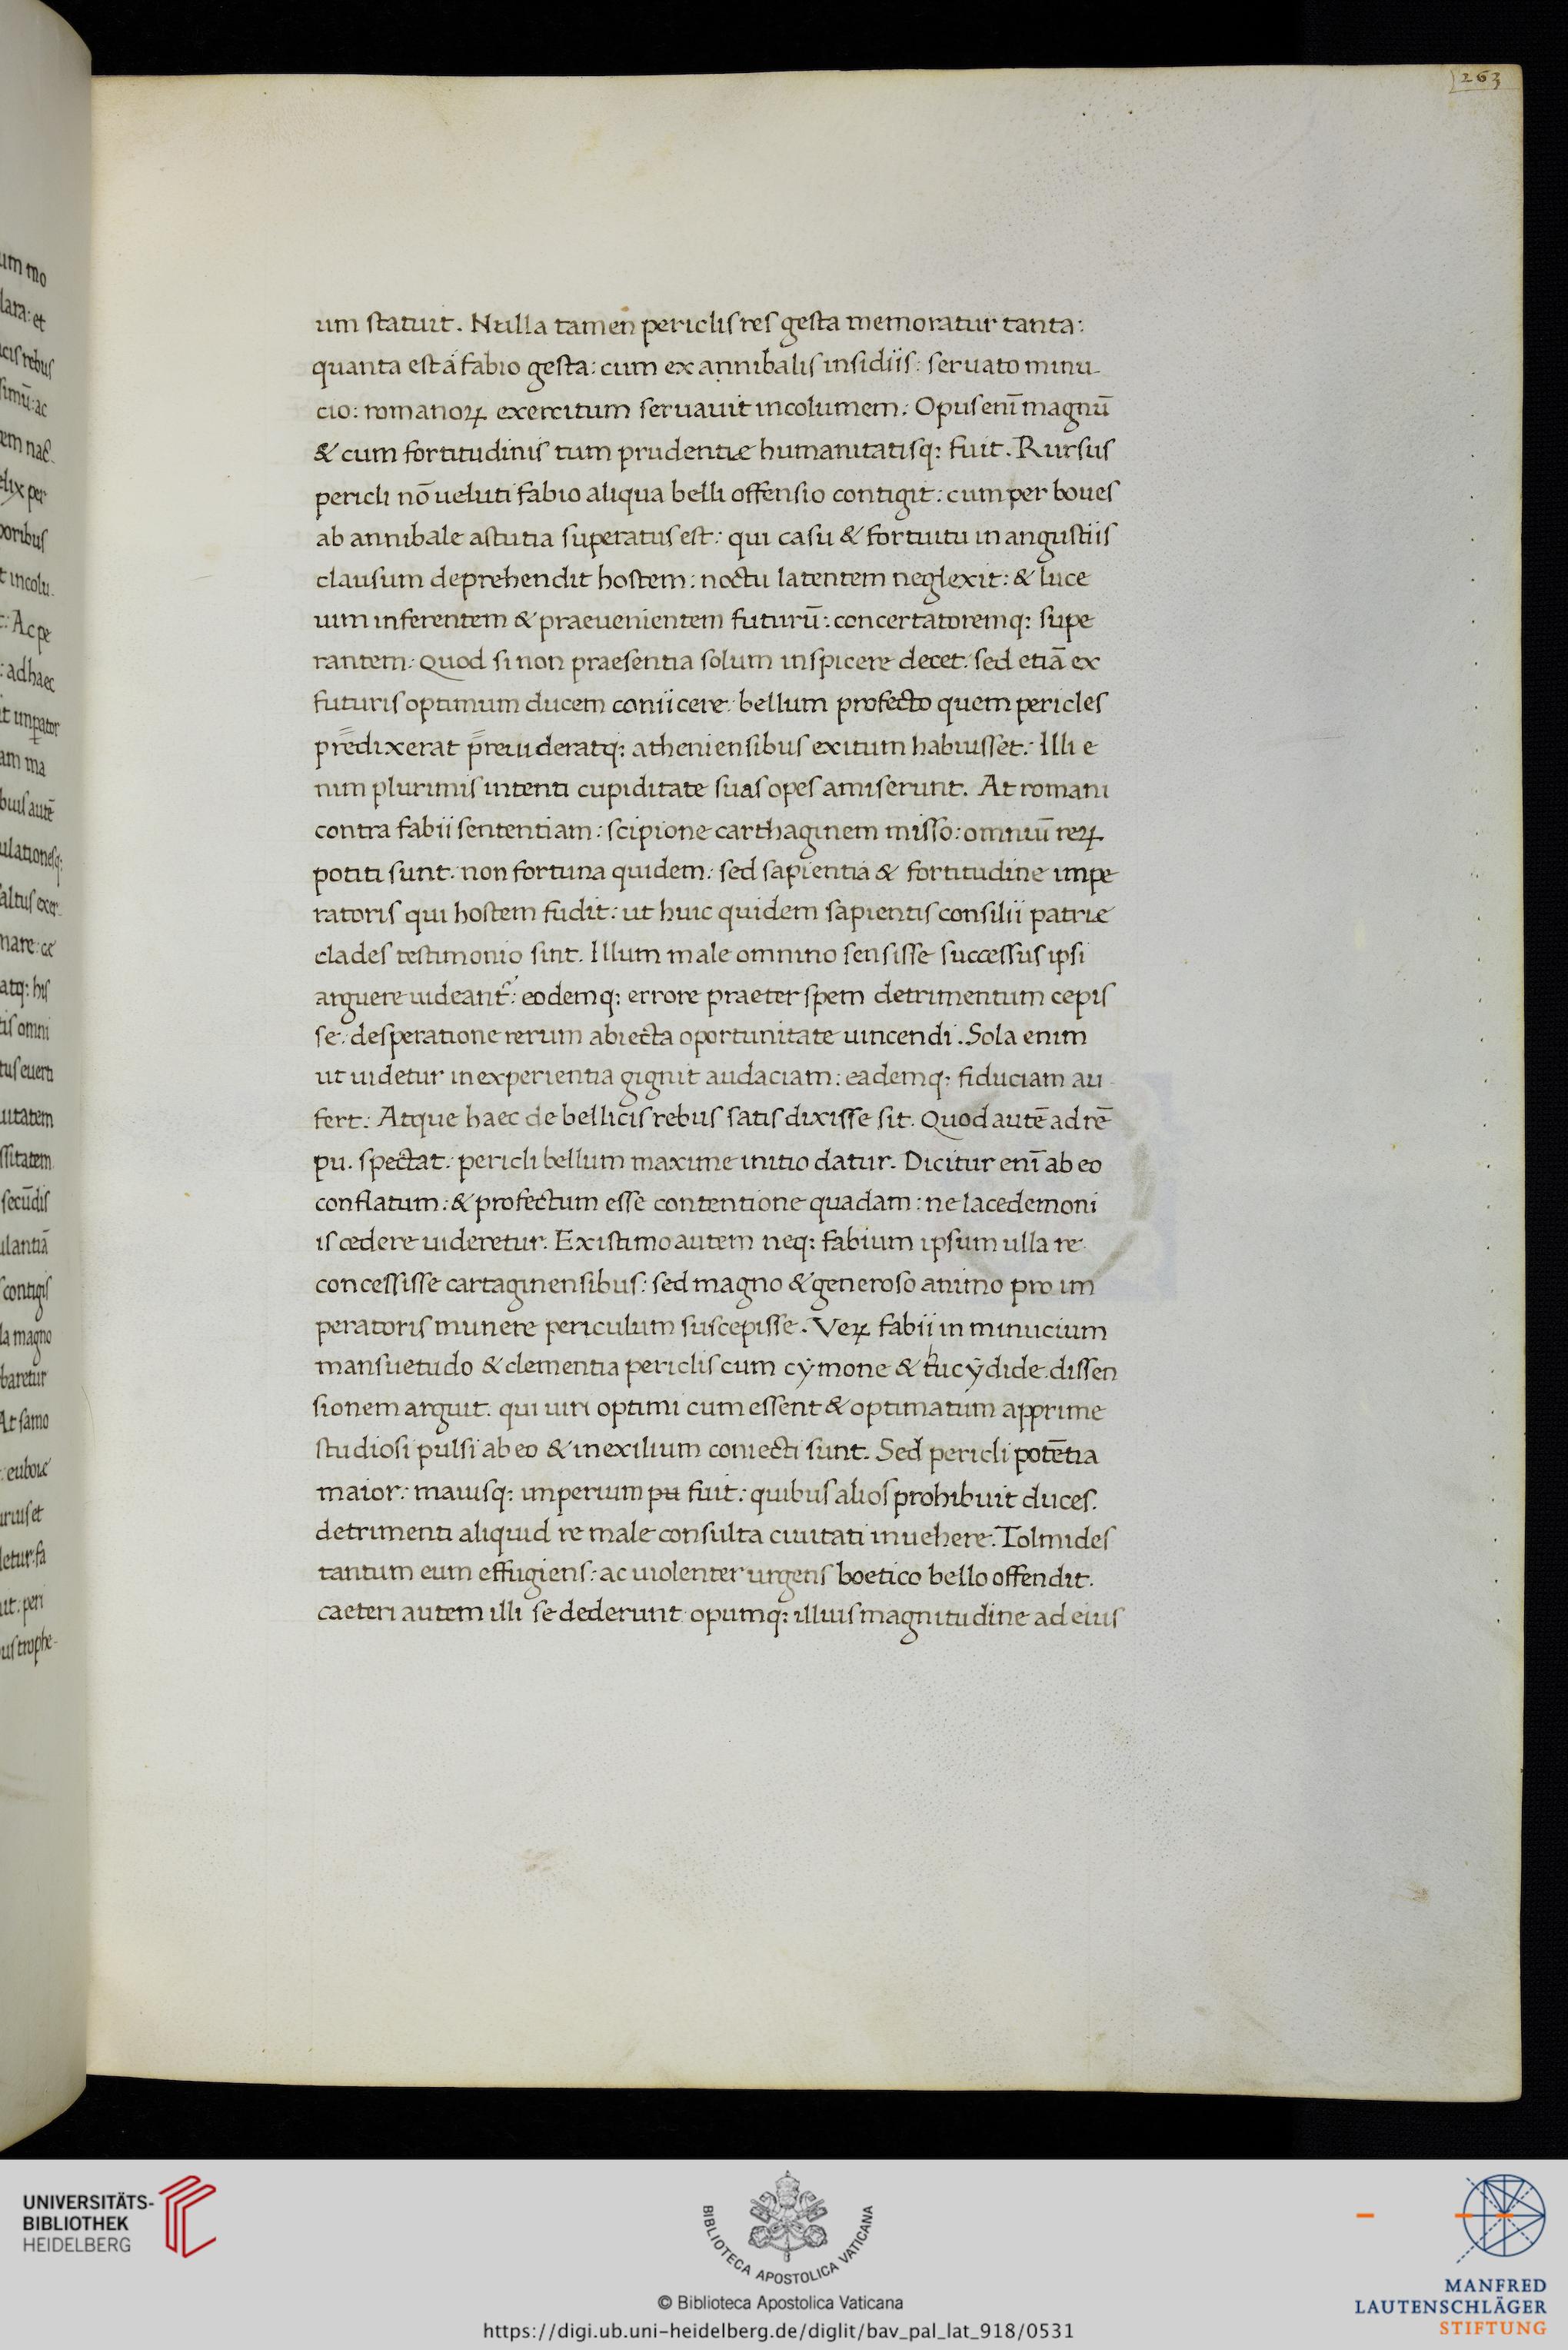 263
um statuit. Nulla tamen periclis res gesta memoratur tanta:
quanta est á fabio gesta: cum ex annibalis insidiis: seruato minu-
cio: romanoꝝ exercitum seruauit incolumem. Opus enī magnū
& cum fortitudinis tum prudentiæ humanitatisq; fuit. Rursus
pericli nō ueluti fabio aliqua belli offensio contigit: cum per boues
ab annibale astutia superatus est: qui casu & fortuitu in angustiis
clausum deprehendit hostem: noctu latentem neglexit: & luce
uim inferentem & praeuenientem futurū: concertatoremq; supe
rantem: Quod si non praesentia solum inspicere decet: sed etiā ex
futuris optimum ducem coniicere: bellum profecto quem pericles
p̄redixerat p̄reuideratq; atheniensibus exitum habuisset: Illi e
nim plurimis intenti cupiditate suas opes amiserunt. At romani
contra fabii sententiam: scipione carthaginem misso: omniū reꝝ
potiti sunt: non fortuna quidem: sed sapientia & fortitudine impe
ratoris qui hostem fudit: ut huic quidem sapientis consilii patriæ
clades testimonio sint. Illum male omnino sensisse successus ipsi
arguere uideant᷑: eodemq; errore praeter spem detrimentum cepis
se: desperatione rerum abiecta oportunitate uincendi. Sola enim
ut uidetur inexperientia gignit audaciam: eademq; fiduciam au
fert: Atque haec de bellicis rebus satis dixisse sit. Quod autē ad rē
pu. spectat: pericli bellum maxime initio datur. Dicitur enī ab eo
conflatum: & profectum esse contentione quadam: ne lacedemoni
is cedere uideretur. Existimo autem neq; fabium ipsum ulla re
concessisse cartaginensibus: sed magno & generoso animo pro im
peratoris munere periculum suscepisse. Veꝝ fabii in minucium
mansuetudo & clementia periclis cum cẏmone & thucẏdide dissen
sionem arguit: qui uiri optimi cum essent & optimatum apprime
studiosi pulsi ab eo & in exilium coniecti sunt. Sed pericli potētia
maior: maiusq; imperium pu fuit: quibus alios prohibuit duces.
detrimenti aliquid re male consulta ciuitati inuehere: Tolmides
tantum eum effugiens: ac uiolenter urgens boetico bello offendit.
caeteri autem illi se dederunt opumq; illius magnitudine ad eius
UNIVERSITÄTS-
BIBLIOTHEK
HEIDELBERG
BIBLIOTECA APOSTOLICA VATICANA
© Biblioteca Apostolica Vaticana
https://digi.ub.uni-heidelberg.de/diglit/bav_pal_lat_918/0531
MANFRED
LAUTENSCHLÄGER
STIFTUNG